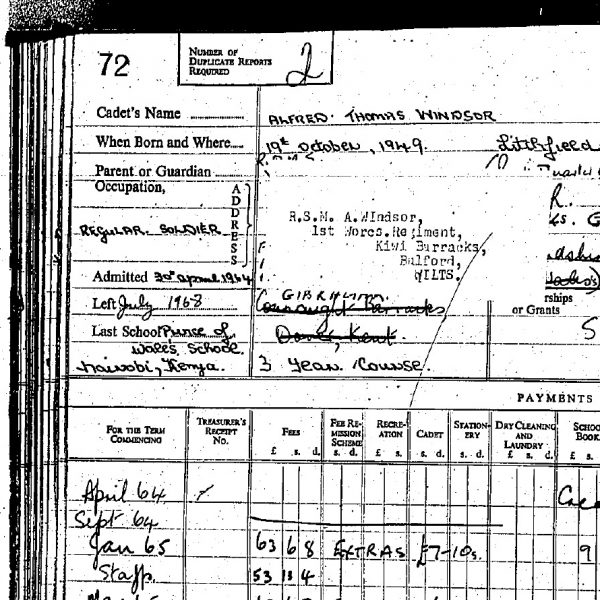 72
NUMBER OF
DUPLICATE REPORTS
REQUIRED
2
Cadet's Name ALFRED THOMAS WINDSOR
When Born and Where 19th October, 1949. Litchfield
Parent or Guardian
Occupation,
ADDRESS
REGULAR SOLDIER
R.S.M. A.Windsor,
1st Worcs.Regiment,
Kiwi Barracks,
Bulford,
WILTS.
R.
Admitted 30th April 1964
Left July 1968
GIBRALTAR
Connaught Barracks
rships
or Grants
Last School Prince of
Dover, Kent.
S
Wales School
Nairobi, Kenya.
3 Year Course.
PAYMENTS
FOR THE TERM
COMMENCING
TREASURER'S
RECEIPT
No.
FEES
£ s. d.
FEE RE-
MISSION
SCHEME
s. d.
RECRE-
ATION
£ s.
CADET
s. d.
STATION-
ERY
s. d.
DRY CLEANING
AND
LAUNDRY
£ s. d.
SCHOO
BOOK
£ s.
April 64
Sept 64
Jan 65 63 6 8 EXTRAS £7-10s. 9
53 13 4